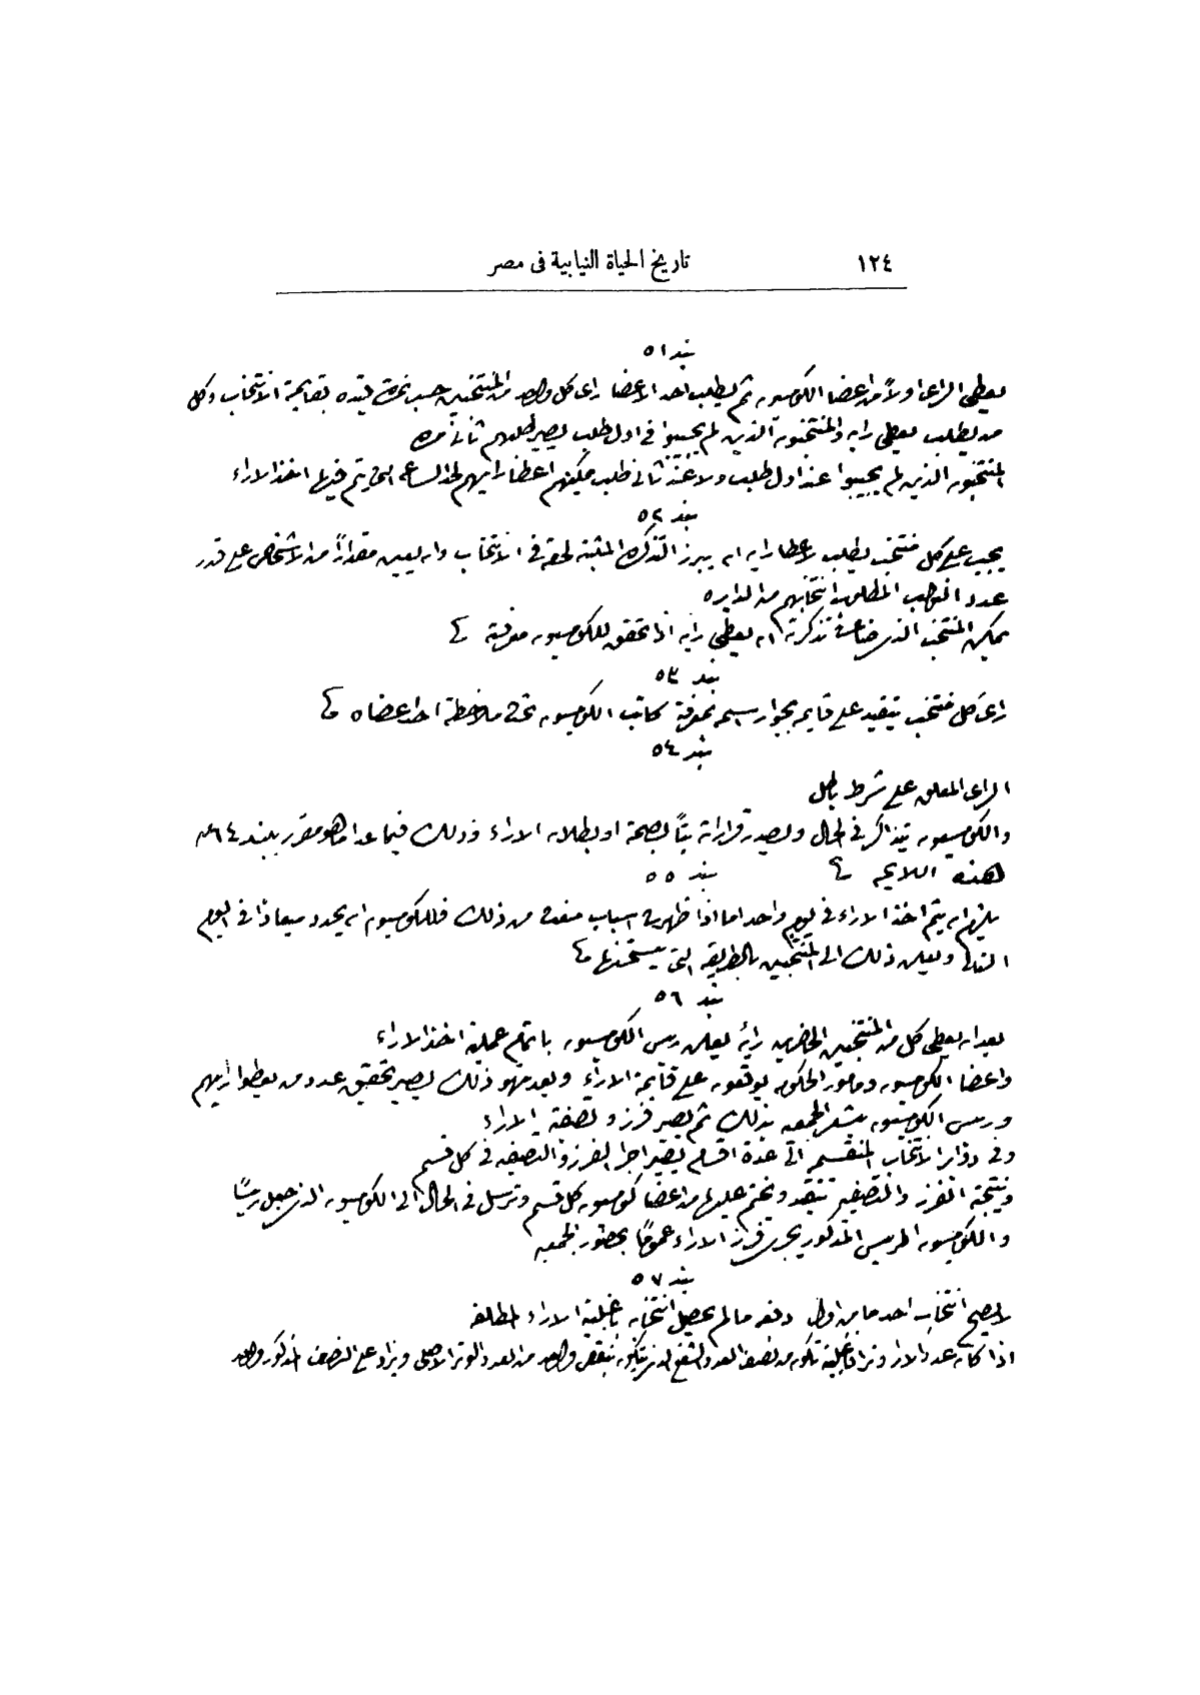 ١٢٤ تاريخ الحياة النيابية فى مصر
بند ٥١
يعطى الراى اولاً من اعضا الكومسيون ثم يطلب احد الاعضا راى كل واحد من المنتخبين حسب نمرة قيده بقايمة الانتخاب وكل
من يطلب يعطى رايه والمنتخبون الذين لم يجيبوا فى اول طلب يصير طلبهم ثانى مره
المنتخبون الذين لم يجيبوا عند اول طلب ولا عند ثانى طلب يمكنهم اعطا رايهم لحد الساعه التى يتم فيها اخذ الاراء
بند ٥٢
يجب على كل منتخب يطلب لاعطا رايه ان يبرز التذكرة المثبته لحقه فى الانتخاب وان يعين مقداراً من الاشخاص على قدر
عدد النواب المطلوب انتخابهم من الدايره
يمكن المنتخب الذى ضاعت تذكرته ان يعطى رايه اذا تحقق للكومسيون معرفته
بند ٥٣
راى كل منتخب يتقيد على قايمه بجوار اسمه بمعرفة كاتب الكومسيون تحت ملاحظة احد اعضاه
بند ٥٤
الراى المعلق على شرط باطل
والكومسيون يتذاكر فى الحال ويصدر قراراته بتاً بصحة او بطلان الاراء وذلك فيما عدا ما هو مقرر ببند ٦٤ من
هذه اللايحه
بند ٥٥
يلزم ان يتم اخذ الاراء فى يوم واحد اما اذا ظهرت اسباب منعت من ذلك فللكومسيون ان يحدد ميعاداً فى اليوم
التالى ويعلن ذلك الى المنتخبين بالطريقه التى يستحسنها
بند ٥٦
بعد ان يعطى كل من المنتخبين الحاضرين رايه يعلن ريس الكومسيون باتمام عملية اخذ الاراء
واعضا الكومسيون ومامور الحكومه يوقعون على قايمة الاراء وبعد نهو ذلك يصير تحقيق عدد من يعطوا رايهم
وريس الكومسيون يشعر الجمعيه بذلك ثم يصير فرز وتصفية الاراء
وفى دواير الانتخاب المنقسمه الى عدة اقسام يصير اجرا الفرز والتصفيه فى كل قسم
ونتيجة الفرز والتصفيه تنقيد ويختم عليها من اعضا كومسيون كل قسم وترسل فى الحال الى الكومسيون الذى جعل ريسيًا
والكومسيون الريسى المذكور يجرى فرز الاراء عموماً بحضور الجمعيه
بند ٥٧
لا يصح انتخاب احد ما من اول دفعه مالم يحصل انتخابه باغلبية الاراء المطلقه
اذا كان عدد الارا وتراً فاغلبيته تكون من نصف العدد الشفع الذى يتكون بنقص واحد من العدد الوتر الاصلى ويزاد على النصف المذكور واحد